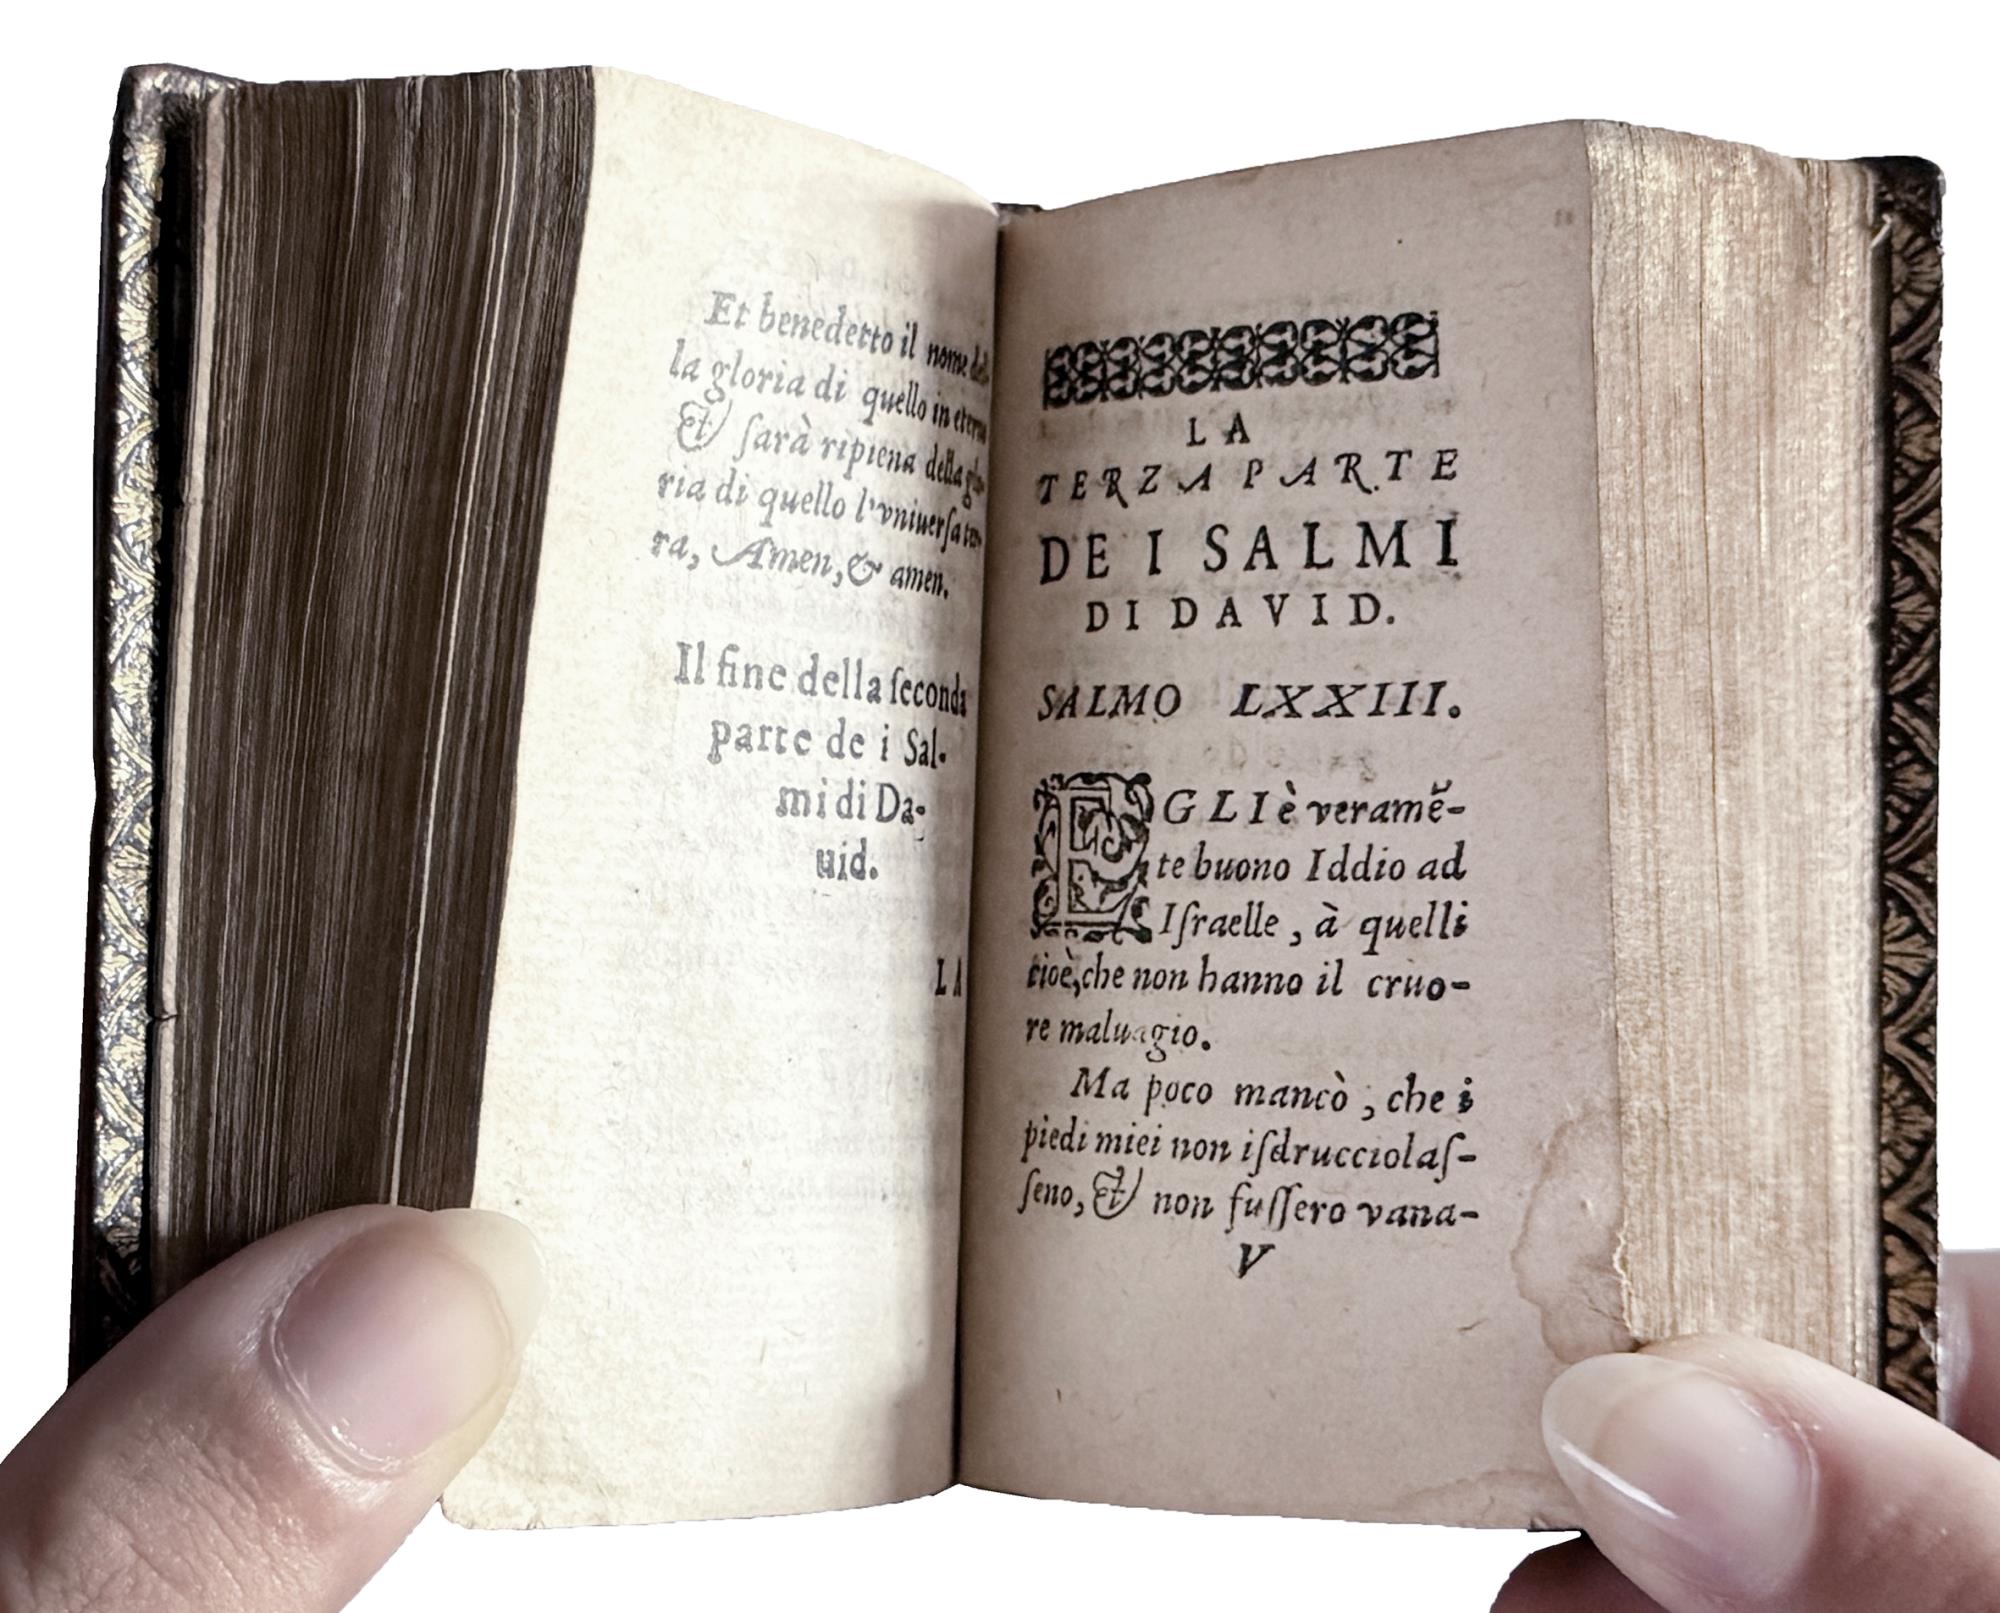 Et benedetto il nome del-
la gloria di quello in eterno
Et ſarà ripiena della glo-
ria di quello l'vniuerſa ter-
ra, Amen, & amen.
Il fine della ſeconda
parte de i Sal-
mi di Da-
uid.
LA
LA
TERZA PARTE
DE I SALMI
DI DAVID.
SALMO LXXIII.
EGLI è veramē-
te buono Iddio ad
Iſraelle, à quelli
cioè, che non hanno il cruo-
re maluagio.
Ma poco mancò, che i
piedi miei non iſdrucciolaſ-
ſeno, Et non fuſſero vana-
V